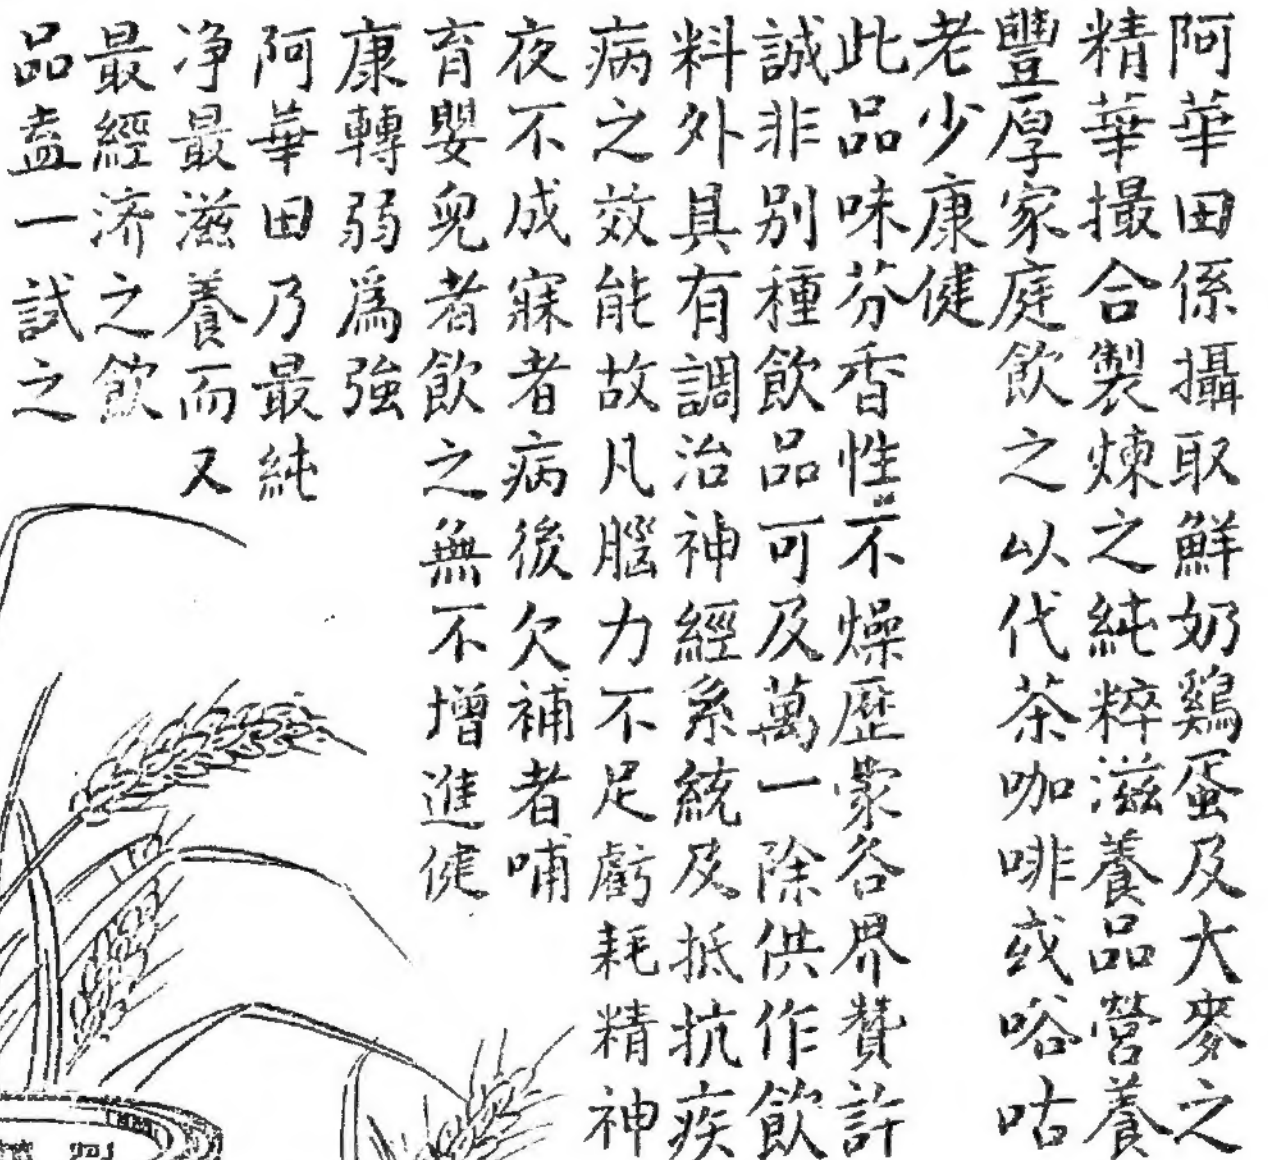 阿華田係攝取鮮奶鷄蛋及大麥之
精華撮合製煉之純粹滋養品營養
豐厚家庭飲之以代茶咖啡或咯咕
老少康健
此品味芬香性不燥歷蒙各界贊許
誠非別種飲品可及萬一除供作飲
料外具有調治神經系統及抵抗疾
病之效能故凡腦力不足虧耗精神
夜不成寐者病後欠補者哺
育嬰兒者飲之無不增進健
康轉弱爲強
阿華田乃最純
净最滋養而又
最經济之飲
品盍一試之